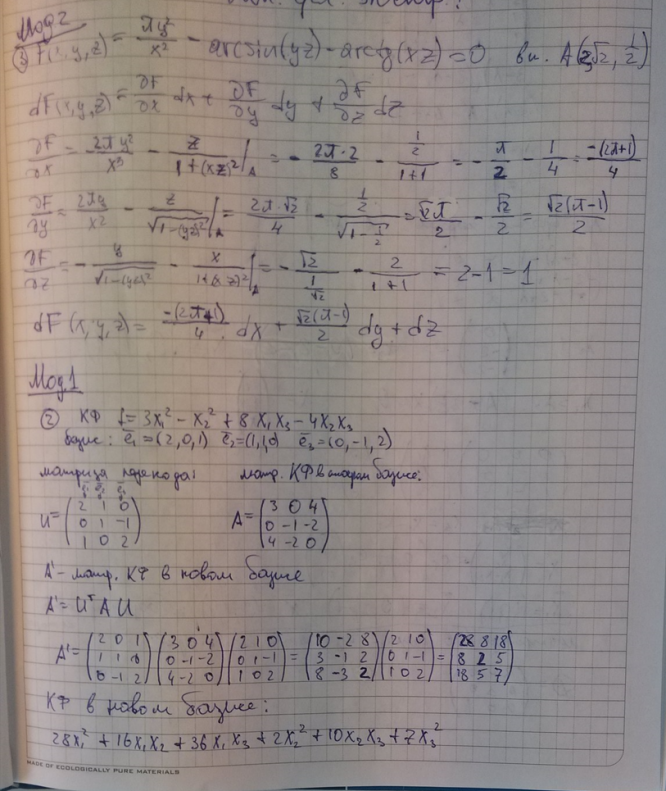 Мод 2
③ F(x,y,z) = πy²/x² - arcsin(yz) - arctg(xz) = 0 в т. A(2, √2, 1/2)
dF(x,y,z) = ∂F/∂x dx + ∂F/∂y dy + ∂F/∂z dz
∂F/∂x = - 2πy²/x³ - z/(1+(xz)²)|_A = - 2π·2/8 - (1/2)/(1+1) = - π/2 - 1/4 = -(2π+1)/4
∂F/∂y = 2πy/x² - z/√(1-(yz)²)|_A = 2π·√2/4 - (1/2)/√(1-1/2) = √2π/2 - √2/2 = √2(π-1)/2
∂F/∂z = - y/√(1-(yz)²) - x/(1+(xz)²)|_A = - √2/(1/√2) - 2/(1+1) = 2-1 = 1
dF(x,y,z) = -(2π+1)/4 dx + √2(π-1)/2 dy + dz
Мод 1
② КФ f = 3x₁² - x₂² + 8x₁x₃ - 4x₂x₃
базис: e₁ = (2,0,1) e₂ = (1,1,0) e₃ = (0,-1,2)
матрица перехода: матр. КФ в старом базисе:
e₁ e₂ e₃
U = (2 1 0; 0 1 -1; 1 0 2) A = (3 0 4; 0 -1 -2; 4 -2 0)
A' - матр. КФ в новом базисе
A' = UᵀAU
A' = (2 0 1; 1 1 0; 0 -1 2)(3 0 4; 0 -1 -2; 4 -2 0)(2 1 0; 0 1 -1; 1 0 2) = (10 -2 8; 3 -1 2; 8 -3 2)(2 1 0; 0 1 -1; 1 0 2) = (28 8 18; 8 2 5; 18 5 7)
КФ в новом базисе:
28x₁² + 16x₁x₂ + 36x₁x₃ + 2x₂² + 10x₂x₃ + 7x₃²
MADE OF ECOLOGICALLY PURE MATERIALS